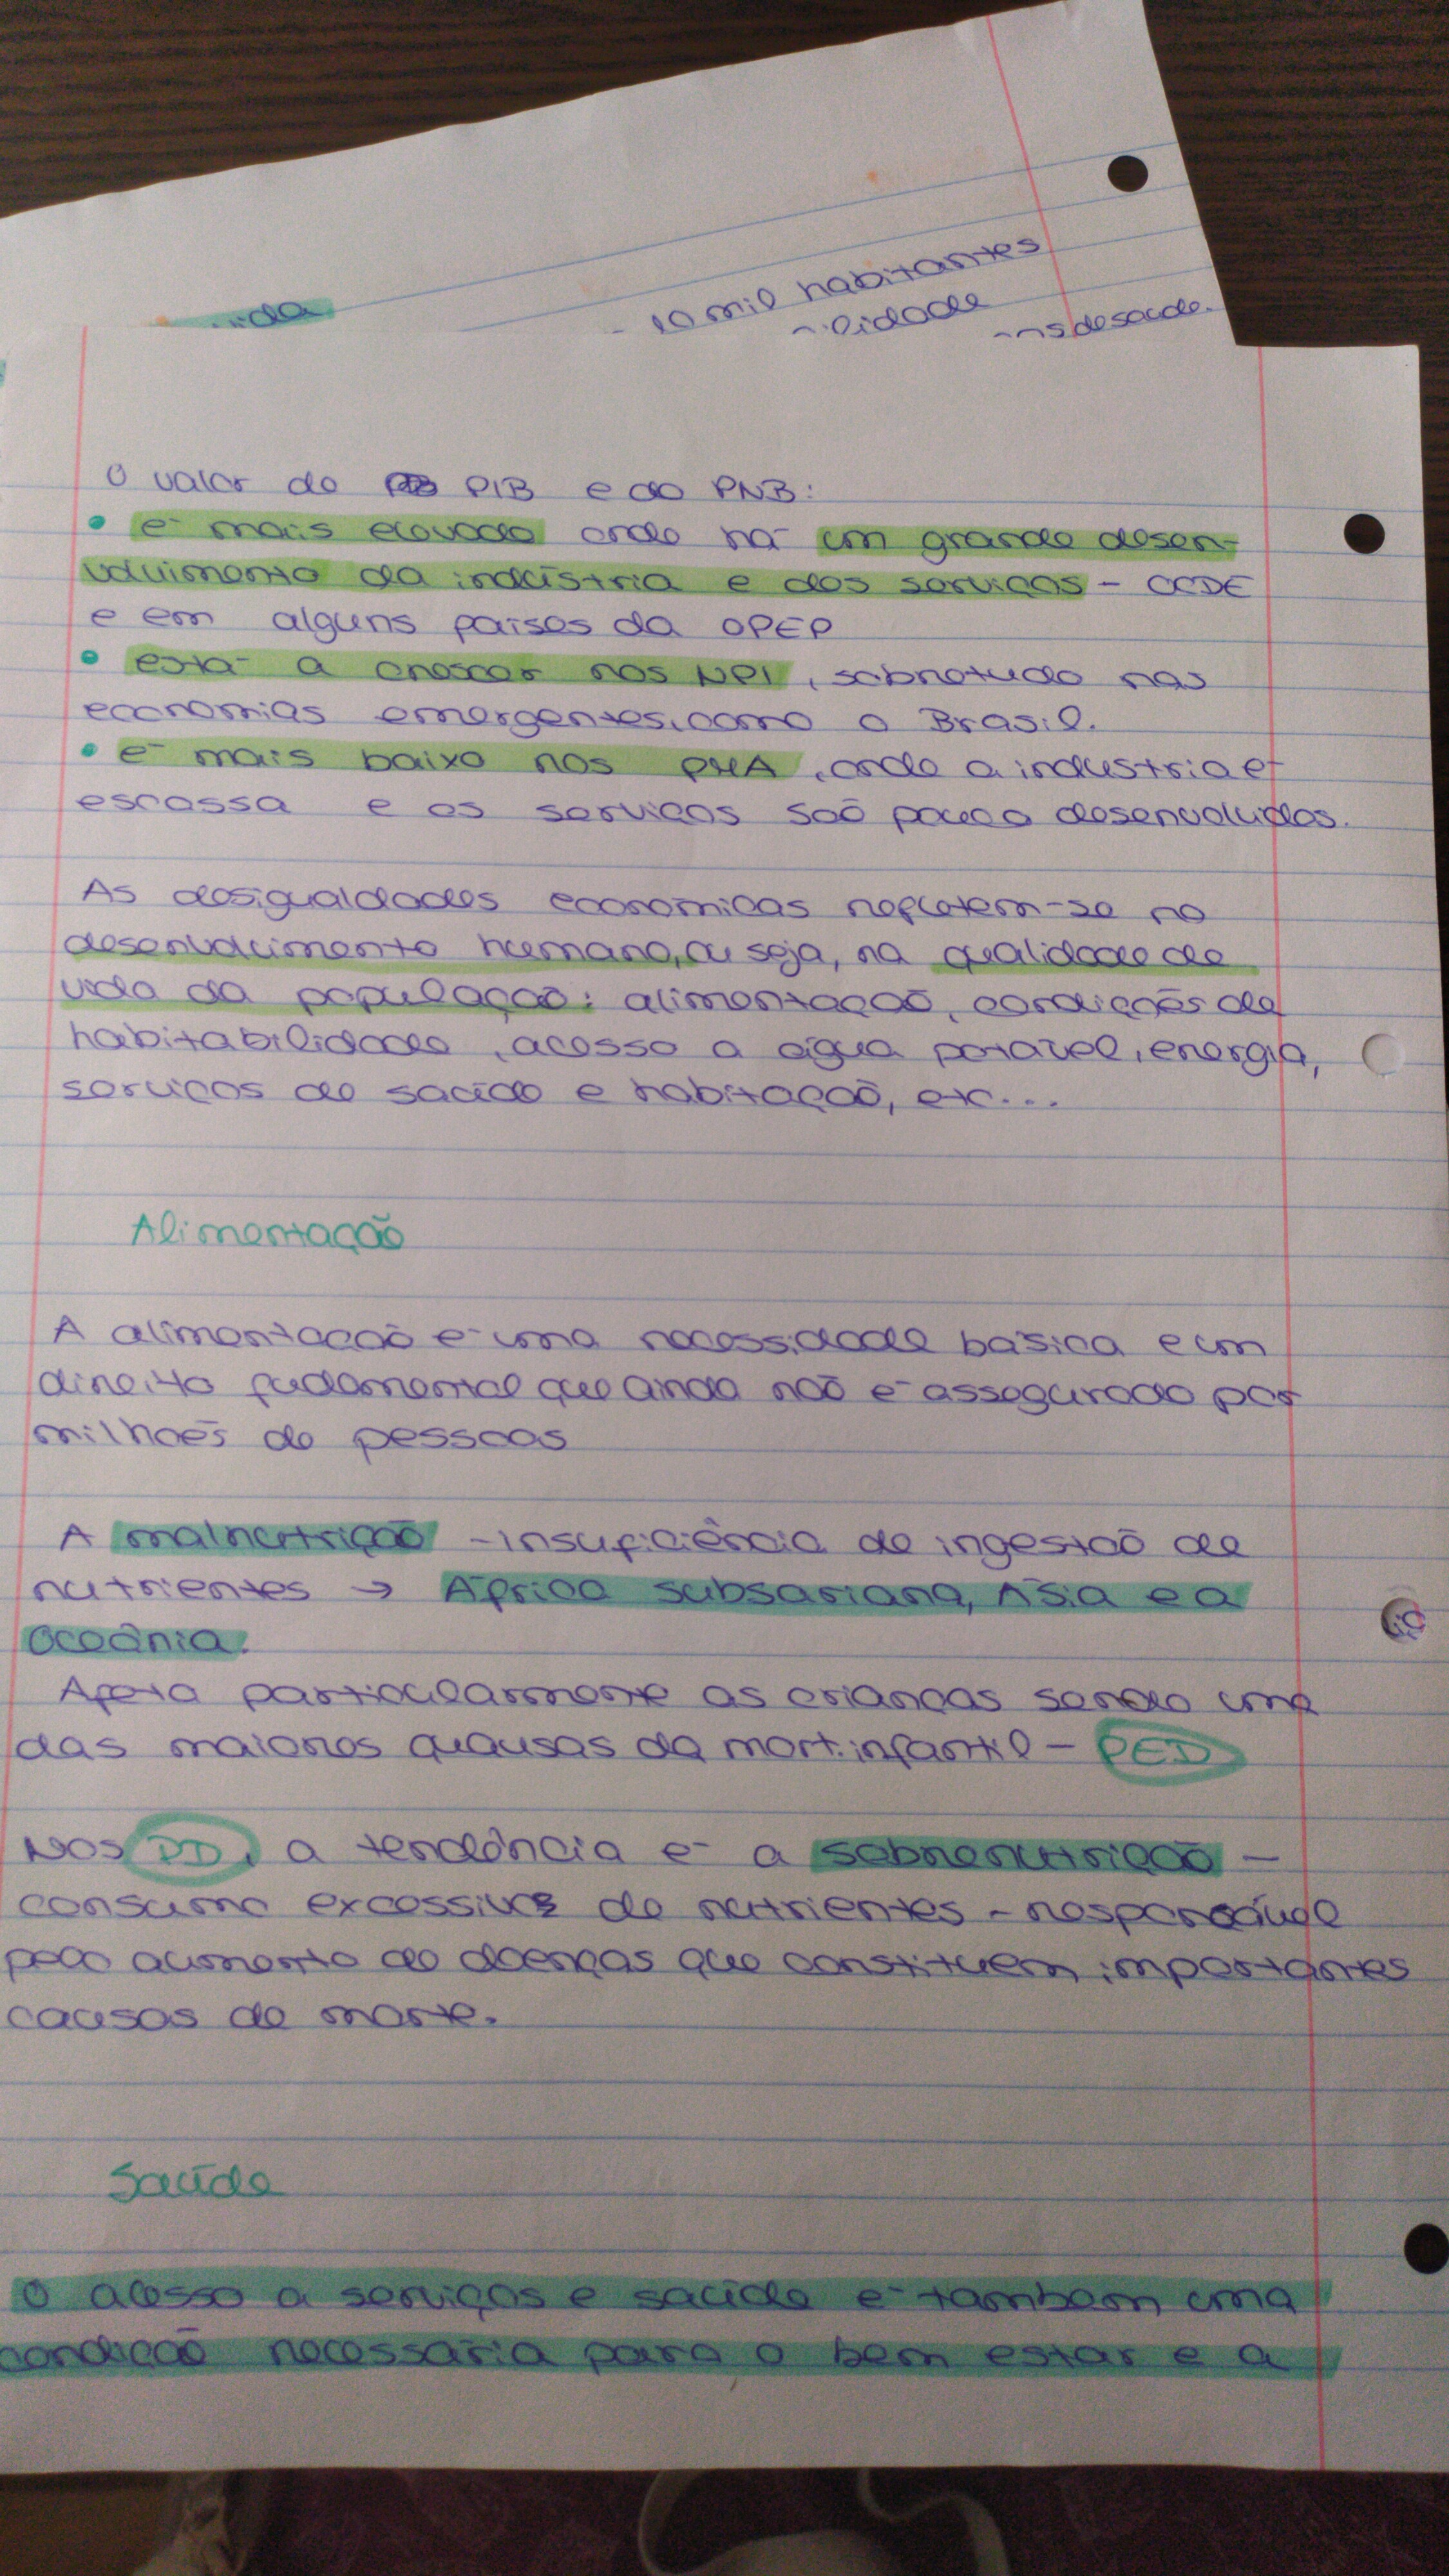 10 mil habitantes
de saúde.
O valor do PIB e do PNB:
• é mais elevado onde há um grande desen-
volvimento da indústria e dos serviços - OCDE
e em alguns países da OPEP
• está a crescer nos NPI, sobretudo nas
economias emergentes, como o Brasil.
• é mais baixo nos PMA, onde a industria é
escassa e os serviços são pouco desenvolvidos.
As desigualdades económicas refletem-se no
desenvolvimento humano, ou seja, na qualidade de
vida da população: alimentação, condições de
habitabilidade, acesso a água potável, energia,
serviços de saúde e habitação, etc...
Alimentação
A alimentação é uma necessidade básica e um
direito fudamental que ainda não é assegurado por
milhões de pessoas
A malnutrição - insuficiência de ingestão de
nutrientes → África subsariana, Ásia e a
Oceânia.
Afeta particularmente as crianças sendo uma
das maiores quausas da mort. infantil - PED
Nos PD, a tendência é a sobrenutrição -
consumo excessivo de nutrientes - responsável
pelo aumento de doenças que constituem importantes
causas de morte.
Saúde
O acesso a serviços e saúde é também uma
condição necessária para o bem estar e a